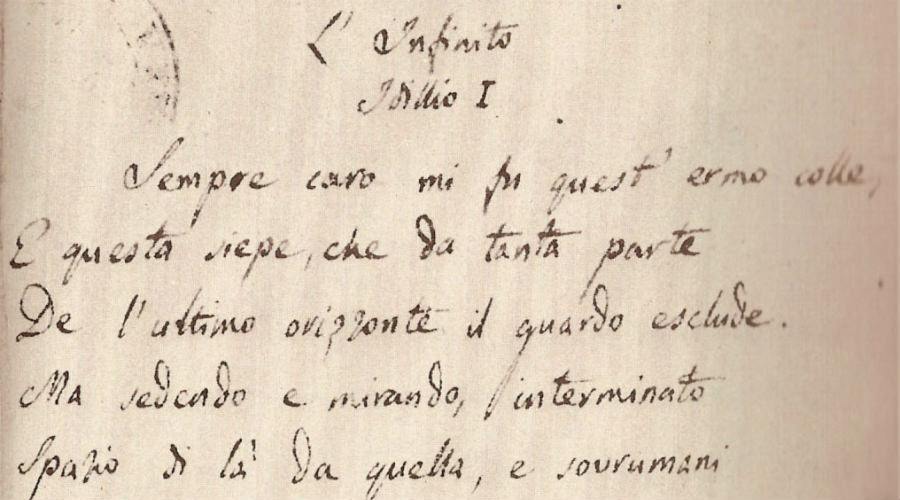 L' Infinito
Idillio I
Sempre caro mi fu quest' ermo colle,
E questa siepe, che da tanta parte
De l'ultimo orizzonte il guardo esclude.
Ma sedendo e mirando, interminato
Spazio di là da quella, e sovrumani